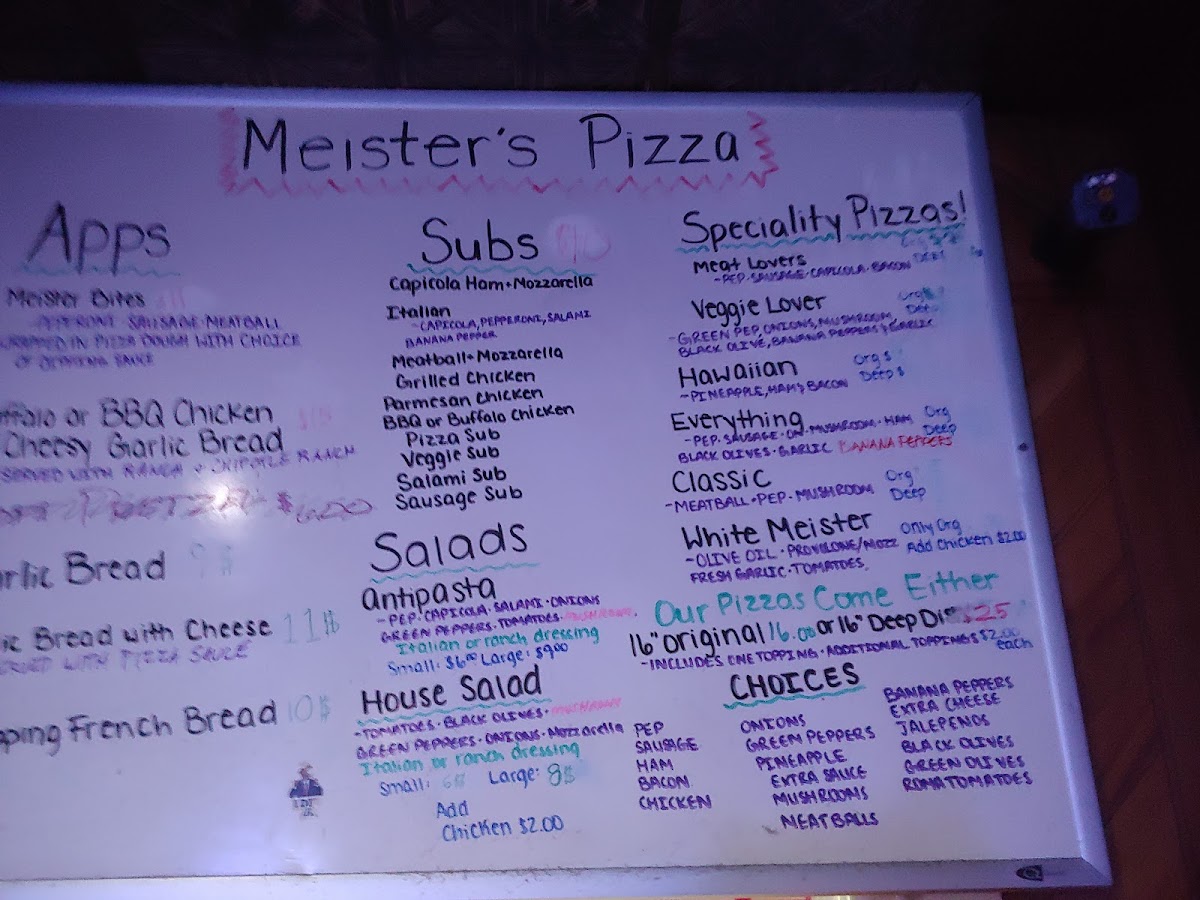 Meister's Pizza
Apps
Meister Bites
SAUSAGE · MEATBALL
IN PIZZA DOUGH WITH CHOICE
OF DIPPING SAUCE
or BBQ Chicken
Cheesy Garlic Bread
SERVED WITH RANCH & CHIPOTLE RANCH
PRETZEL $6.00
Bread
Bread with Cheese 11$
WITH PIZZA SAUCE
French Bread 10$
Subs
Capicola Ham + Mozzarella
Italian
- CAPICOLA, PEPPERONI, SALAMI
BANANA PEPPER
Meatball + Mozzarella
Grilled Chicken
Parmesan Chicken
BBQ or Buffalo Chicken
Pizza Sub
Veggie Sub
Salami Sub
Sausage Sub
Salads
Antipasta
- PEP · CAPICOLA · SALAMI · ONIONS
GREEN PEPPERS · TOMATOES · MUSHROOMS.
Italian or ranch dressing
Small: $6.00 Large: $9.00
House Salad
- TOMATOES · BLACK OLIVES ·
GREEN PEPPERS · ONIONS · Mozzarella
Italian or ranch dressing
Small: 6$ Large: 8$
Add
Chicken $2.00
Speciality Pizzas!
Meat Lovers
- PEP · SAUSAGE · CAPICOLA · BACON
Veggie Lover
- GREEN PEP, ONIONS, MUSHROOM
BLACK OLIVE, BANANA PEPPERS & GARLIC
Hawaiian Org $
- PINEAPPLE, HAM & BACON Deep $
Everything Org
- PEP · SAUSAGE · ON · MUSHROOM · HAM Deep
BLACK OLIVES · GARLIC BANANA PEPPERS
Classic Org
- MEATBALL + PEP · MUSHROOM Deep
White Meister Only Org
- OLIVE OIL · PROVOLONE/MOZZ Add Chicken $2.00
FRESH GARLIC · TOMATOES,
Our Pizzas Come Either
16" Original 16.00 or 16" Deep $25
- INCLUDES ONE TOPPING · ADDITIONAL TOPPINGS $2.00
each
CHOICES
PEP
SAUSAGE
HAM
BACON
CHICKEN
ONIONS
GREEN PEPPERS
PINEAPPLE
EXTRA SAUCE
MUSHROOMS
MEATBALLS
BANANA PEPPERS
EXTRA CHEESE
JALEPENOS
BLACK OLIVES
GREEN OLIVES
ROMA TOMATOES